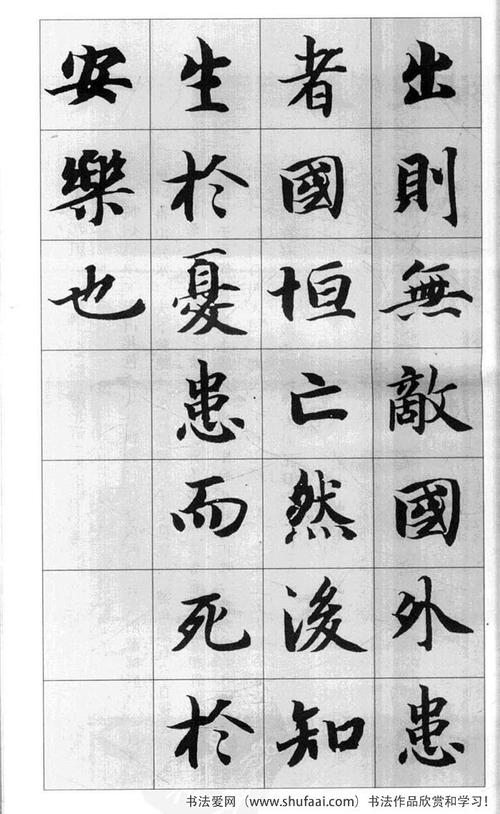 出則無敵國外患
者國恒亡然後知
生於憂患而死於
安樂也
书法爱网（www.shufaai.com）书法作品欣赏和学习！